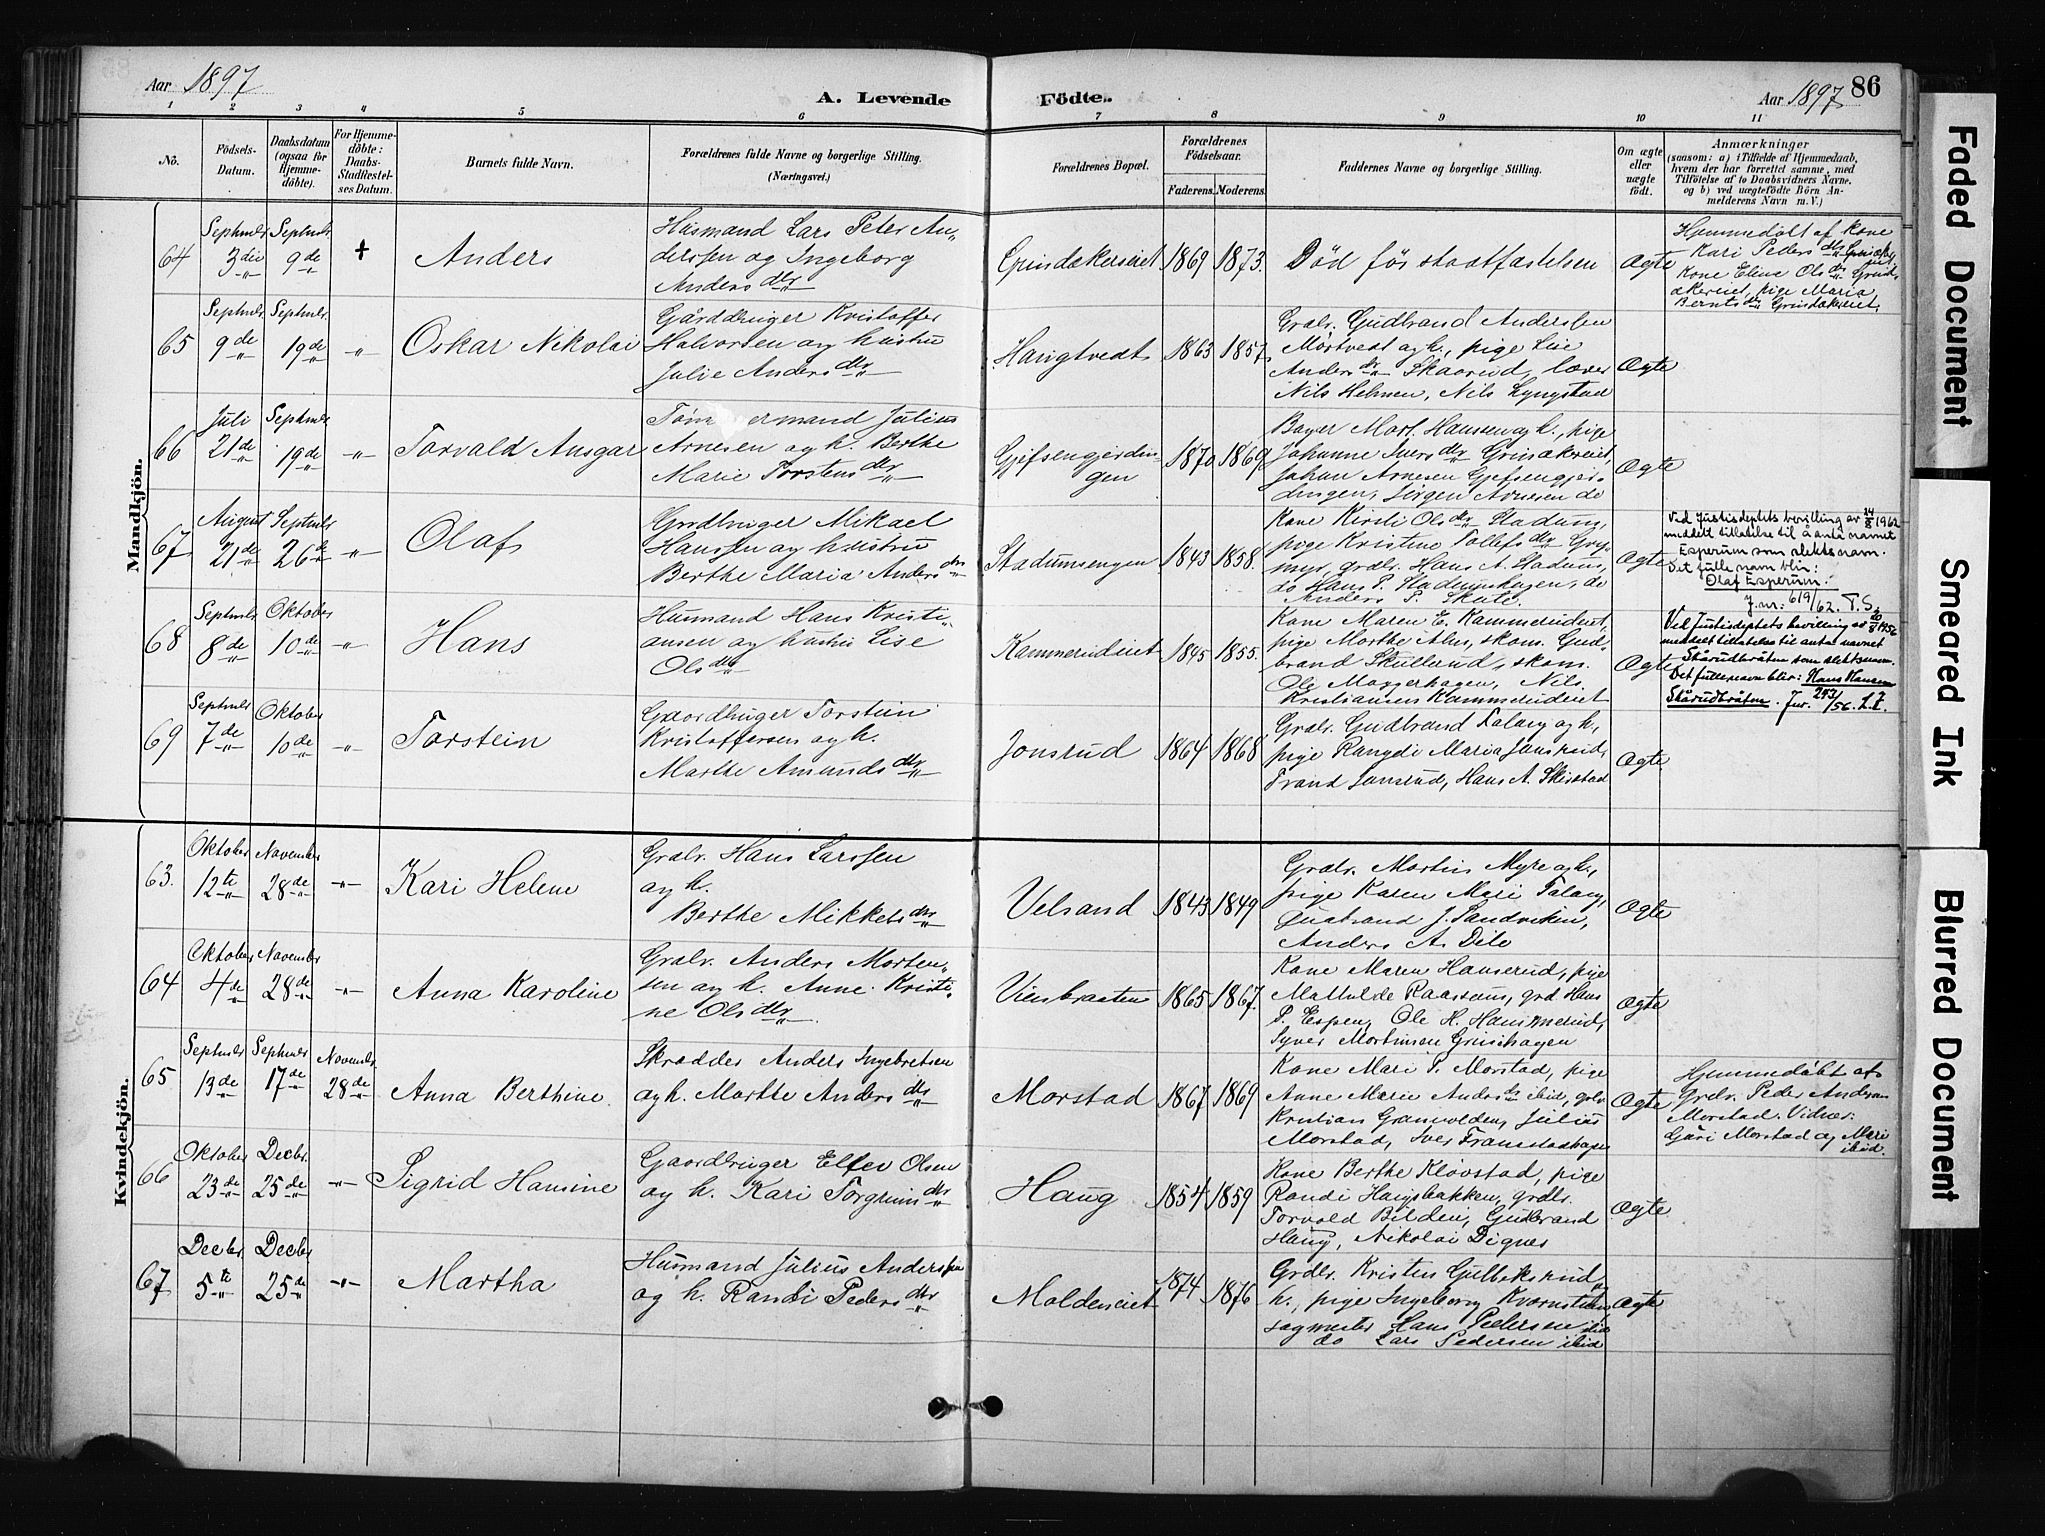 Aar 1897
A. Levende
Födte.
Aar 1897
86
1 2 3 4 5 6 7 8 9 10 11
No.
Födsels-
Datum.
Daabsdatum
(ogsaa for
Hjemme-
döbte).
For Hjemme-
döbte:
Daabs-
Stadfæstel-
ses Datum.
Barnets fulde Navn.
Forældrenes fulde Navne og borgerlige Stilling.
(Næringsvei.)
Forældrenes Bopæl.
Forældrenes
Födselsaar.
Faderens. Moderens.
Faddernes Navne og borgerlige Stilling.
Om ægte
eller
uægte
födt.
Anmærkninger
(saasom: a) i Tilfælde af Hjemmedaab,
hvem der har forrettet samme, med
Tilföielse af to Daabsvidners Navne,
og b) ved uægtefödte Börn An-
melderens Navn m. V.)
Mandkjön.
64
Septmbr
3die
Septmbr
9de
+
Anders
Husmand Lars Peter An-
derssen og Ingeborg
Anders dtr
Grindakereiet
1869
1873.
Död för stadfæstelsen
Ægte
Hjemmedöbt af kone
Kari Peders dtr
Kone Eline Ols dtr Grind-
akereiet, pige Maria
Bernts dtr Grindakereiet
65
Septmbr
9de
Septmbr
19de
"
Oskar Nikolai
Gårdbruger Kristoffer
Halvorsen og hustru
Julie Anders dtr
Haugtvedt
1863
1857
Grdbr. Gudbrand Anderssen
Mörtvedt og h., pige Lise
Anders dtr Skaarud, lærer
Nils Helmen, Nils Lyngstad
Ægte
66
Juli
21de
Septmbr
19de
"
Torvald Ansgar
Töm ermand Julius
Arnesen og h. Berthe
Marie Torstens dtr
Gjefsengjerdin-
gen
1870
1869
Mort. Hansen og h., pige
Johanne Ivers dtr Grinakereiet,
Johan Arnesen Gjefsengjer-
dingen, Jörgen Arnesen do
Ægte
67
August
21de
Septmbr
26de
"
Olaf
Gårdbruger Mikael
Hanssen og hustru
Berthe Maria Anders dtr
Stadumsengen
1843
1858.
Kone Kirsti Ols dtr Stadum,
pige Kristine Tollefs dtr
myr, grdbr. Hans A. Stadum,
do Hans P. Stadumshagen, do
Anders P. Skute.
Ægte
Ved Justisdeptets bevilling av 24/8 1962
meddelt tillatelse til å anta navnet
Esperum som slektsnavn.
Det fulle navn blir:
Olaf Esperum.
J.nr. 619/62. T.S.
68
Septmbr
8de
Oktober
10de
"
Hans
Husmand Hans Kristi-
ansen og hustru Lise
Ols dtr
Kammerudeiet
1845
1855.
Kone Maren E. Kammerudeiet,
pige Marthe skom. Gud-
brand Skullerud, skom.
Ole Moggerhagen, Nils
Kristiansen Kammerudeiet
Ægte
Ved Justisdeptets bevilling av 1956
meddelt tillatelse til anta navnet
Skårudbråten som slektsnavn.
Det fulle navn blir: Hans Hansen
Skårudbråten. Jnr. 243/56.
69
Septmbr
7de
Oktober
10de
"
Torstein
Gaardbruger Torstein
Kristoffersen og h.
Marthe Amunds dtr
Jonsrud
1864
1868
Grdbr. Gudbrand Falang og h.,
pige Rangdi Maria Jonsrud,
Trond Jonsrud, Hans A. Skiastad
Ægte.
Kvindekjön.
63.
Oktober
12te
November
28de
"
Kari Helene
Grdbr. Hans Larssen
og h.
Berthe Mikkels dtr
Velsand
1843
1849
Grdbr. Martin Myre og h.,
pige Karen Mari Falang,
Gudbrand J. Sandviken,
Anders A. Dile
Ægte
64
Oktober
4de
November
28de
"
Anna Karoline
Grdbr. Anders Morten-
sen og h. Anne Kristi-
ne Ols dtr
Viensbraaten
1865
1867.
Kone Maren Hanserud, pige
Mathilde Raassum, grd Hans
P. Espen, Ole H. Hansmerud,
Syver Mortinsen
Ægte
65
Septmbr
13de
Septmbr
17de
Novembr
28de
Anna Berthine.
Skrædder Anders Ingebretsen
og h. Marthe Anders dtr
Morstad
1867
1869
Kone Mari P. Morstad, pige
Anne Marie Anders dtr ibid, grdbr.
Kristian Granvolden, Julius
Morstad, Iver
Ægte
Hjemmedöbt af
Grdbr. Peder Andersen
Morstad. Vidner:
Guri Morstad og Mari
ibid.
66
Oktober
23de
Decbr.
25de
"
Sigrid Hansine
Gaardbruger Elfev Olsen
og h. Kari Torgrims dtr
Haug
1854
1859
Kone Berthe Klövstad, pige
Randi Haugsbakken, grdbr.
Torvald Bilden, Gudbrand
Haug, Nikolai Dignes
Ægte
67
Decbr.
5te
Decbr
25de
"
Martha
Husmand Julius Anderssen
og h. Randi Peders dtr
Moldeneiet
1874
1876
Grdbr. Kristen Gulbeksrud
h., pige Ingeborg
sagmester Hans Pedersen ibid
do Lars Pedersen ibid
Ægte
Faded Document
Smeared Ink
Blurred Document